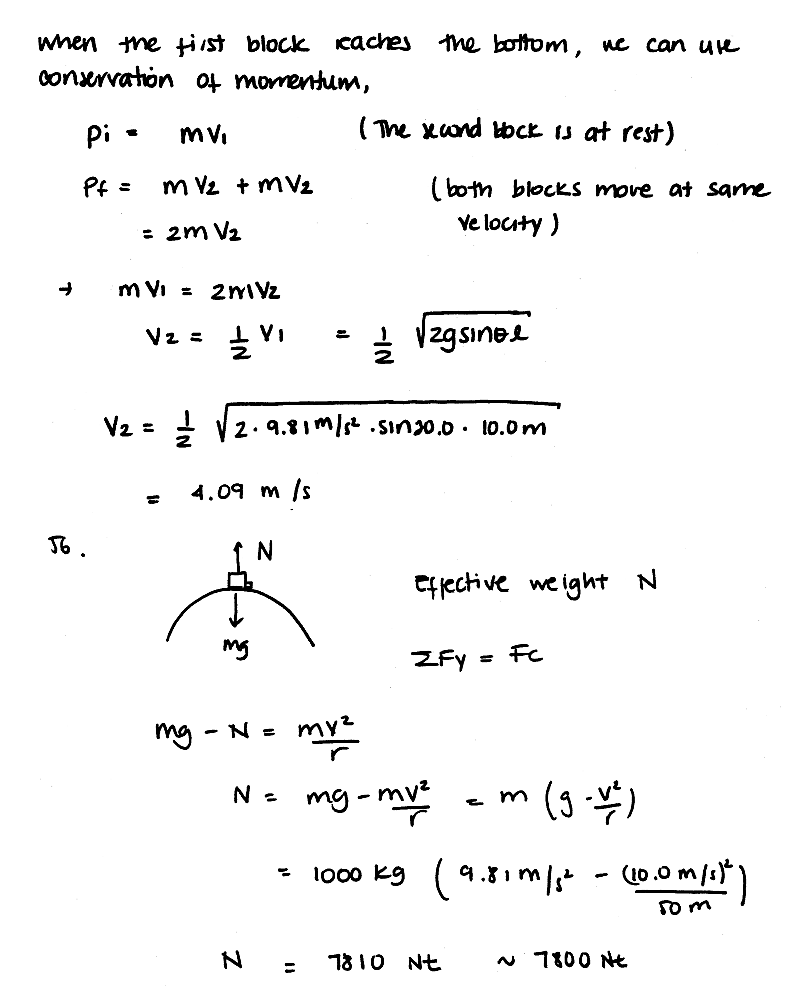 when the first block reaches the bottom, we can use
conservation of momentum,
Pi = mV₁ (The second block is at rest)
Pf = mV₂ + mV₂ (both blocks move at same
velocity)
= 2mV₂
→ mV₁ = 2mV₂
V₂ = 1/2 V₁ = 1/2 √(2gsinθl)
V₂ = 1/2 √(2 · 9.81 m/s² · sin20.0 · 10.0 m)
= 4.09 m/s
56.
N
Effective weight N
mg
ΣFy = Fc
mg - N = mv²/r
N = mg - mv²/r = m (g - v²/r)
= 1000 kg (9.81 m/s² - (10.0 m/s)²/50 m)
N = 7810 Nt ~ 7800 Nt